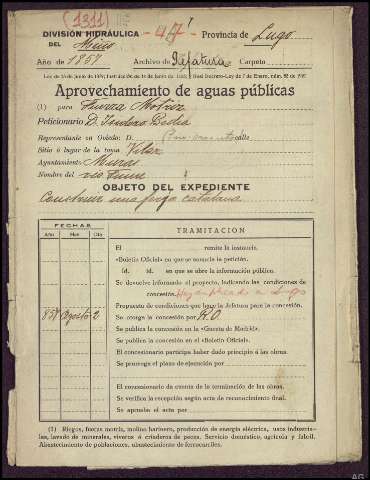 (1311)
DIVISIÓN HIDRÁULICA - 47 - Provincia de Lugo
DEL Miño
Año de 1857 Archivo de Jefatura Carpeta
Aprovechamiento de aguas públicas
(1) para Fuerza Motriz
Peticionario D. Isidoro Bedia
Representante en Oviedo: D. calle
Sitio ó lugar de la toma Vilar
Ayuntamiento Muras
Nombre del río Eume
OBJETO DEL EXPEDIENTE
Construir una forja catalana
FECHAS TRAMITACIÓN
Año Mes Día
El remite la instancia.
«Boletín Oficial» en que se anuncia la petición.
id. id. en que se abre la información pública.
Se devuelve informado el proyecto, indicando las condiciones de
concesión. Hay a Lugo
Propuesta de condiciones que hace la Jefatura para la concesión.
857 Agosto 2 Se otorga la concesión por R.O
Se publica la concesión en la «Gaceta de Madrid».
Se publica la concesión en el «Boletín Oficial».
El concesionario participa haber dado principio á las obras.
Se prorroga el plazo de ejecución por
El concesionario da cuenta de la terminación de las obras.
Se verifica la recepción según acta de reconocimiento final.
Se aprueba el acta por
(1) Riegos, fuerza motriz, molino harinero, producción de energía eléctrica, usos industria-
les, lavado de minerales, viveros ó criaderos de peces. Servicio doméstico, agrícola y fabril.
Abastecimiento de poblaciones, abastecimiento de ferrocarriles.